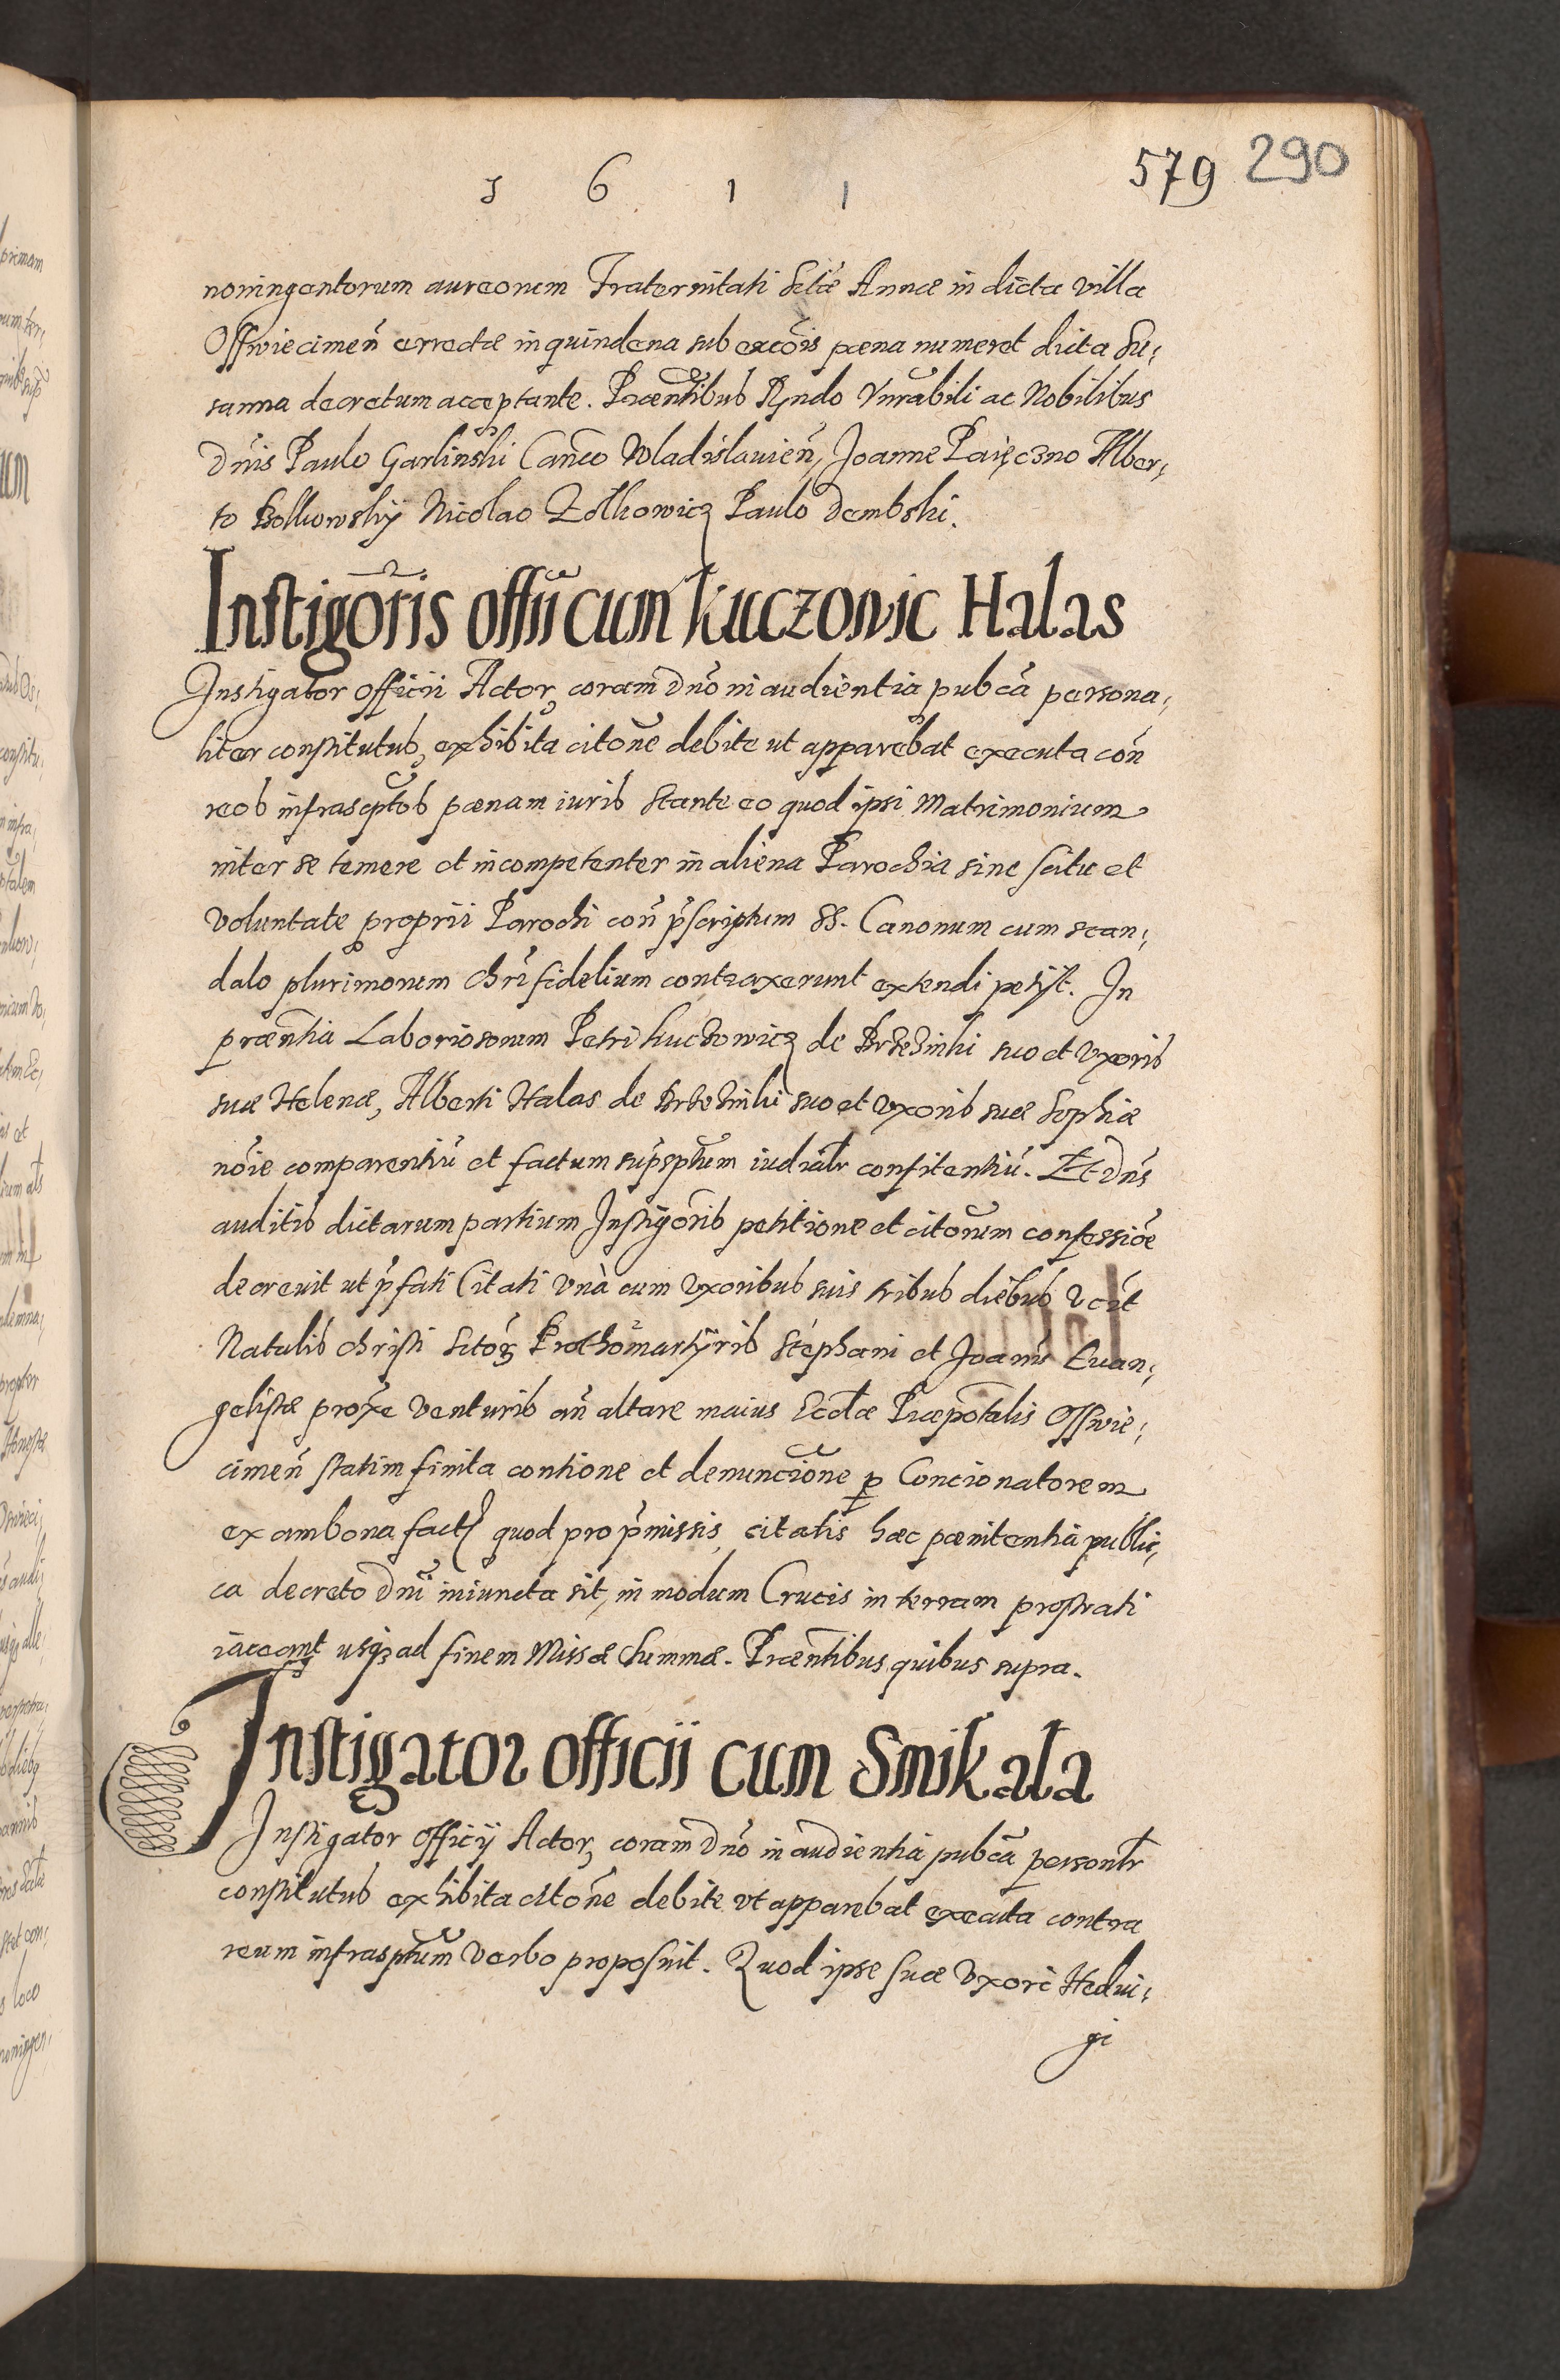 1 6 1 1
579 290
noningentorum aureorum Fraternitati Sctæ Annæ in dicta villa
Osswiecimeñ errectæ in quindena sub excõis pœna numeret dicta Su,
sanna decretum acceptante. Præntibus Rndo Vnrabili ac Nobilibus
Dnis Paulo Garlinski Canco Wladislauieñ, Joanne Paięczno Alber,
to Bolkowskÿ Nicolao Zolkowicz Paulo Dembski.
Instigõris offii cum Kuczowic Halas
Instigator officii Actor, coram Dño in audientia pubcã persona,
liter constitutus, exhibita citoñe debite ut apparebat executa coñ
reos infrascptos pœnam iuris stante eo quod ipsi Matrimonium
inter se temere et incompetenter in aliena Parochia sine scitu et
voluntate proprii Parochi coñ p̃scriptum SS. Canonum cum scan,
dalo plurimorum Chrĩ fidelium contraxerunt extendi petÿt. In
præntia Laboriosorum Petri Kuczowicz de Brzezinki suo et Vxoris
suæ Helenæ, Alberti Halas de Brzezinki suo et Vxoris suæ Sophiæ
nõie comparentiũ et factum supsptum iudialr confitentiũ. Et Dñs
auditis dictarum partium Instigõris petitione et citorum confessiõe
decreuit ut p̃fati Citati Vnà cum Vxoribus suis tribus diebus Vczt
Natalis Christi Sctorz Prothomartÿris Stephani et Joanis Euan,
gelistæ proxe venturis añ altare maius Eccłæ Præpotalis Osswie,
cimeñ statim finita contione et denuncione p Concionatorem
ex ambona facta quod pro p̃missis citatis hæc pænitentia publi,
ca decreto Dñi iniuncta sit, in modum Crucis in terram prostrati
iaceant usq3 ad finem Missæ Summæ. Præntibus quibus supra.
Instigator officii cum Smikala
Instigator officÿ Actor, coram Dño in audientia pubcã personlr
constitutus exhibita citoñe debite vt apparebat executa contra
reum infrasptum Verbo proposuit. Quod ipse suæ Vxori Hedui,
gi